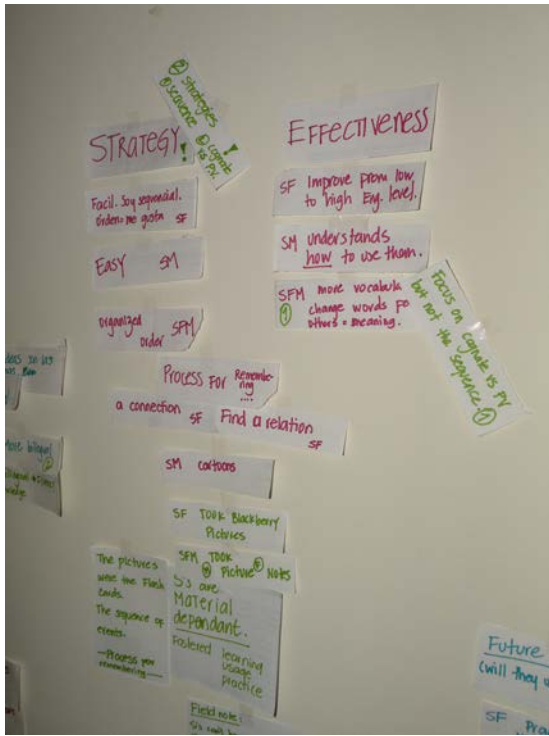 ② strategies
① sequence !
② cognate
vs PV.
STRATEGY!
Facil. Soy sequencial.
Orden = me gusta SF
Easy SM
Organized
Order SFM
Process For Remembe-
ring
....
a connection SF Find a relation
SF
SM cartoons
SF TOOK Blackberry
Pictures
SFM TOOK
Picture Notes
The pictures
were the Flash
cards.
The sequence of
events.
S's are
MATERIAL
dependant.
Fostered learning
usage
practice
Field note:
EFFECTIVENESS
SF Improve from low
to high Eng. level.
SM understands
how to use them.
SFM more vocabul
change words
others = meaning.
Focus on cognate vs PV
but not the sequence ①
More bilingual
Future
(will they
SF